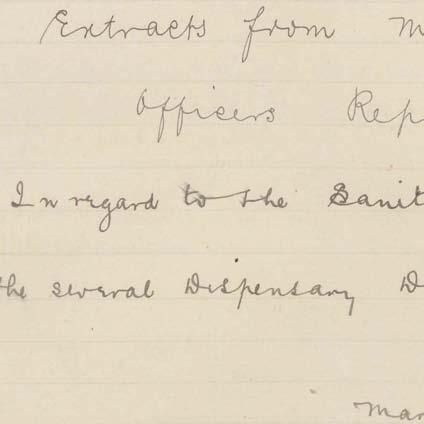 Extracts from M
Officers Rep
In regard to the Sanit
the several Dispensary D
Mar